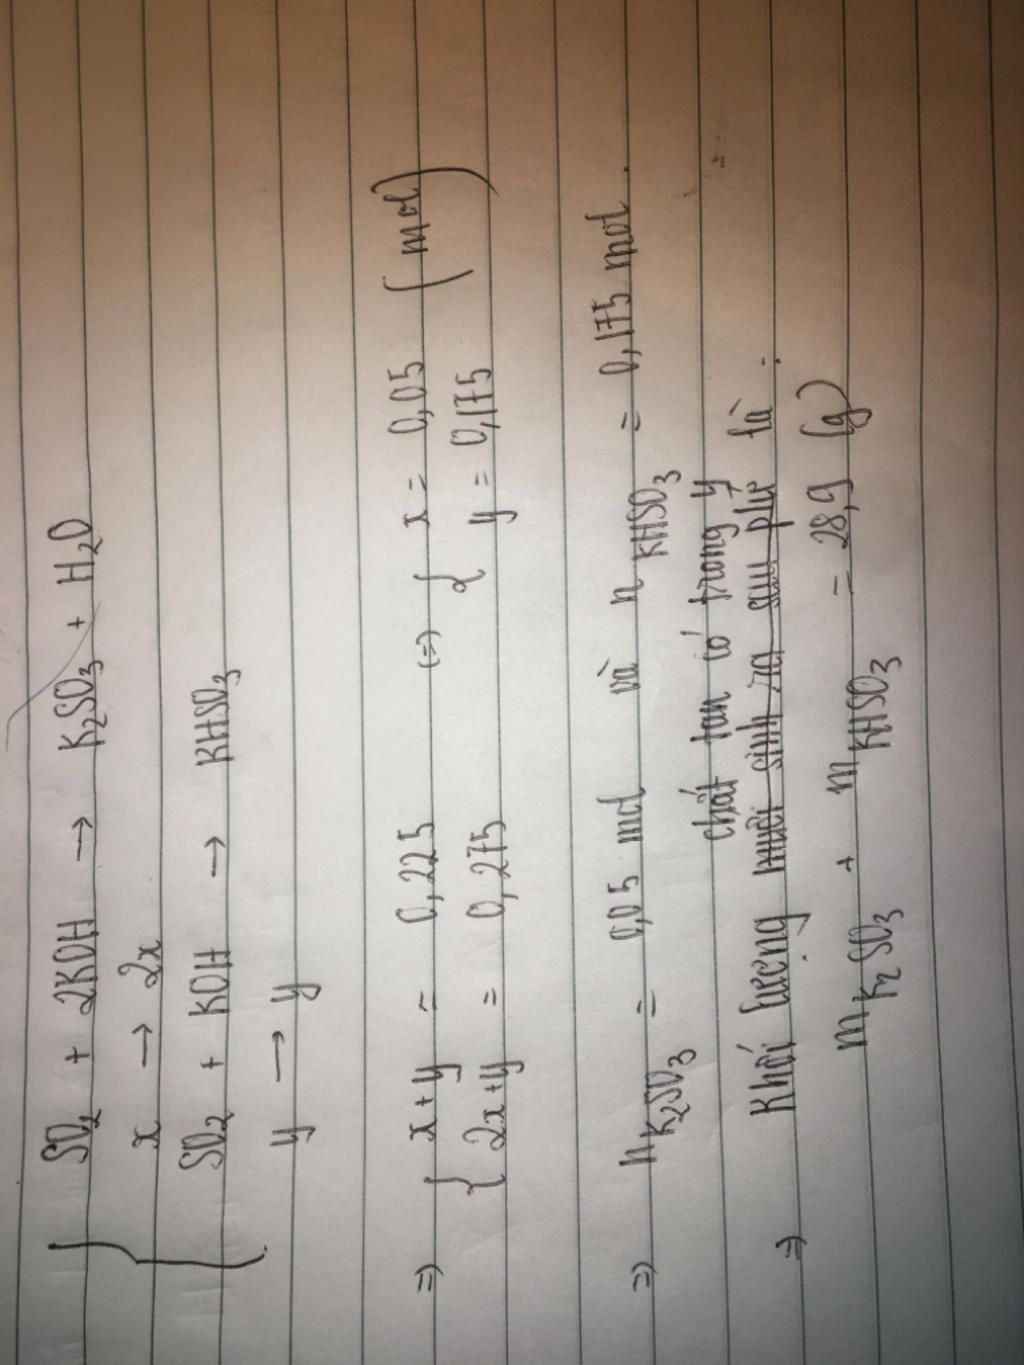 SO₂ + 2KOH → K₂SO₃ + H₂O
x → 2x
SO₂ + KOH → KHSO₃
y → y
⇒ { x+y = 0,225 (=) { x = 0,05 (mol)
{ 2x+y = 0,275 { y = 0,175
⇒ n K₂SO₃ = 0,05 mol và n KHSO₃ = 0,175 mol.
chất tan có trong Y
⇒ Khối lượng muối sinh ra sau phứ là :
m K₂SO₃ + m KHSO₃ = 28,9 (g)